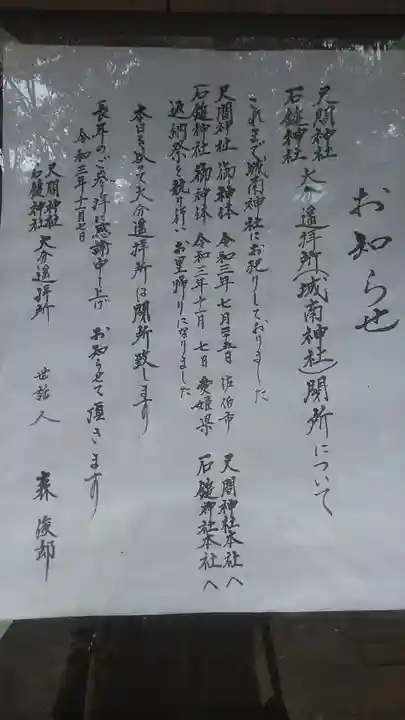 お知らせ
尺間神社
石鎚神社
大分遥拝所(城南神社)閉所について
これまで城南神社にお祀りしておりました
尺間神社 御神体 令和三年 七月二十五日 佐伯市 尺間神社本社へ
石鎚神社 御神体 令和三年十一月 七日 愛媛県 石鎚神社本社へ
返納祭を執り行い お里帰りになりました
本日を以て大分遥拝所は閉所致します
長年のご参拝に感謝申し上げ お知らせて頂きます
令和三年十一月七日
尺間神社
石鎚神社
大分遥拝所 世話人 森 俊郎